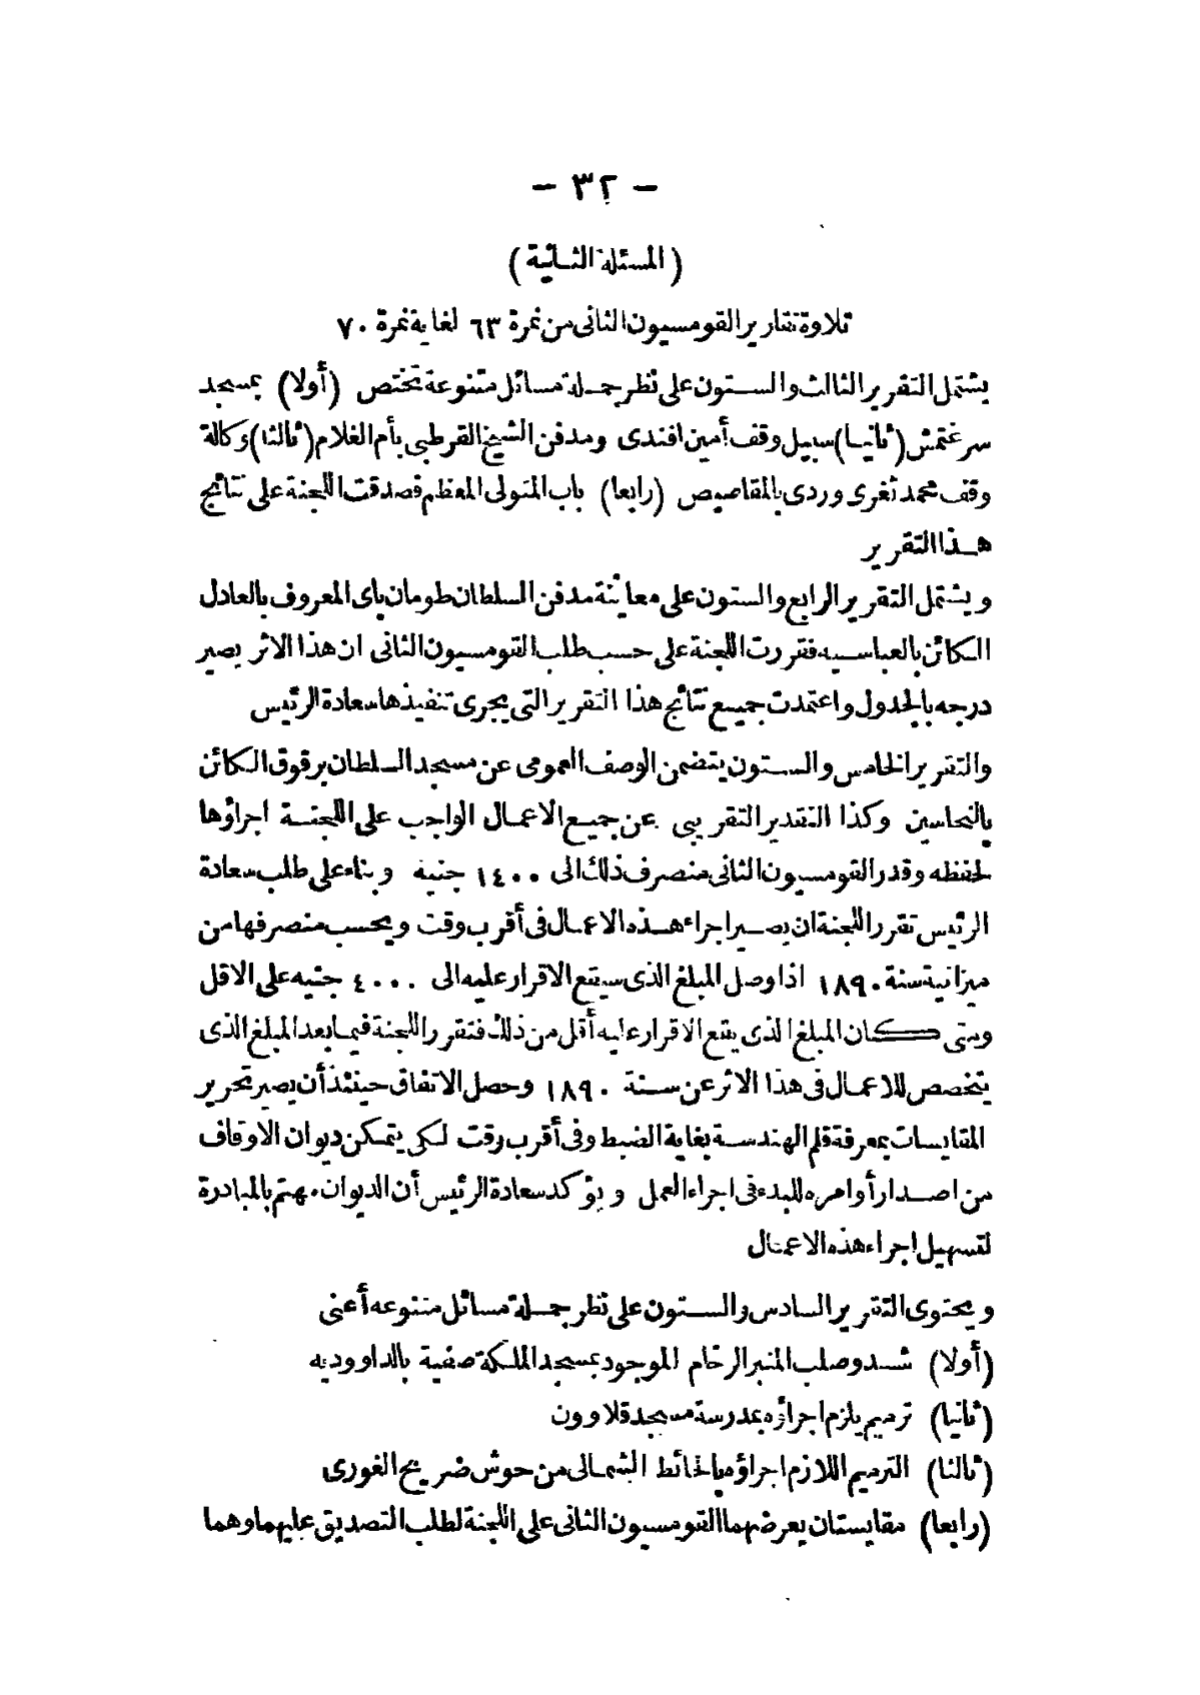 - ٣٢ -
(المسئلة الثانية)
تلاوة تقارير القومسيون الثانى من نمرة ٦٣ لغاية نمرة ٧٠
يشتمل التقرير الثالث والستون على نظر جملة مسائل متنوعة تختص (أولا) بمسجد
سرغتمش (ثانيا) سبيل وقف أمين افندى ومدفن الشيخ القرطبى بأم الغلام (ثالثا) وكالة
وقف محمد ثغرى وردى بالمقاصيص (رابعا) باب المتولى المعظم فصدقت اللجنة على نتائج
هذا التقرير
ويشتمل التقرير الرابع والستون على معاينة مدفن السلطان طومان باى المعروف بالعادل
الكائن بالعباسيه فقررت اللجنة على حسب طلب القومسيون الثانى ان هذا الاثر يصير
درجه بالجدول واعتمدت جميع نتائج هذا التقرير التى يجرى تنفيذها سعادة الرئيس
والتقرير الخامس والستون يتضمن الوصف العمومى عن مسجد السلطان برقوق الكائن
بالنحاسين وكذا التقدير التقريبى عن جميع الاعمال الواجب على اللجنة اجراؤها
لحفظه وقدر القومسيون الثانى منصرف ذلك الى ١٤٠٠ جنيه وبناء على طلب سعادة
الرئيس تقرر اللجنة ان يصير اجراء هذه الاعمال فى أقرب وقت ويحسب منصرفها من
ميزانية سنة ١٨٩٠ اذا وصل المبلغ الذى سيقع الاقرار عليه الى ٤٠٠٠ جنيه على الاقل
ومتى كان المبلغ الذى يقع الاقرار عليه أقل من ذلك فتقرر اللجنة فيما بعد المبلغ الذى
يتخصص للاعمال فى هذا الاثر عن سنة ١٨٩٠ وحصل الاتفاق حينئذ أن يصير تحرير
المقايسات بمعرفة قلم الهندسة بغاية الضبط وفى أقرب وقت لكى يتمكن ديوان الاوقاف
من اصدار أوامره للبدء فى اجراء العمل ويؤكد سعادة الرئيس أن الديوان مهتم بالمبادرة
لتسهيل اجراء هذه الاعمال
ويحتوى التقرير السادس والستون على نظر جملة مسائل متنوعه أعنى
(أولا) شد وصلب المنبر الرخام الموجود بمسجد الملكة صفية بالداووديه
(ثانيا) ترميم يلزم اجراؤه بمدرسة مسجد قلاوون
(ثالثا) الترميم اللازم اجراؤه بالحائط الشمالى من حوش ضريح الغورى
(رابعا) مقايستان يعرضهما القومسيون الثانى على اللجنة لطلب التصديق عليهما وهما